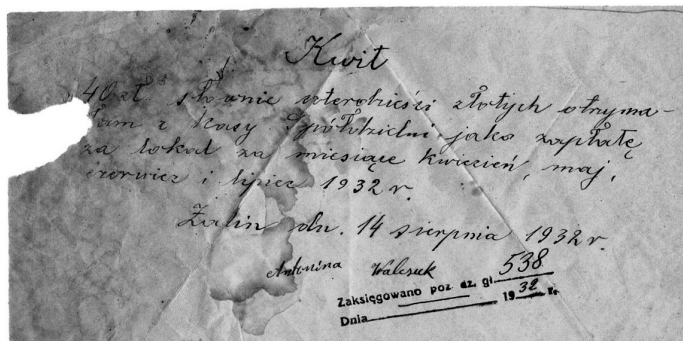 Kwit
40 zł słownie czterdzieści złotych otrzyma-
łam z Kasy Spółdzielni jako zapłatę
za lokal za miesiące kwiecień, maj,
czerwiec i lipiec 1932 r.
Żalin dn. 14 sierpnia 1932 r.
Antonina Walczuk
Zaksięgowano poz. dz. gł. 538
Dnia 1932 r.